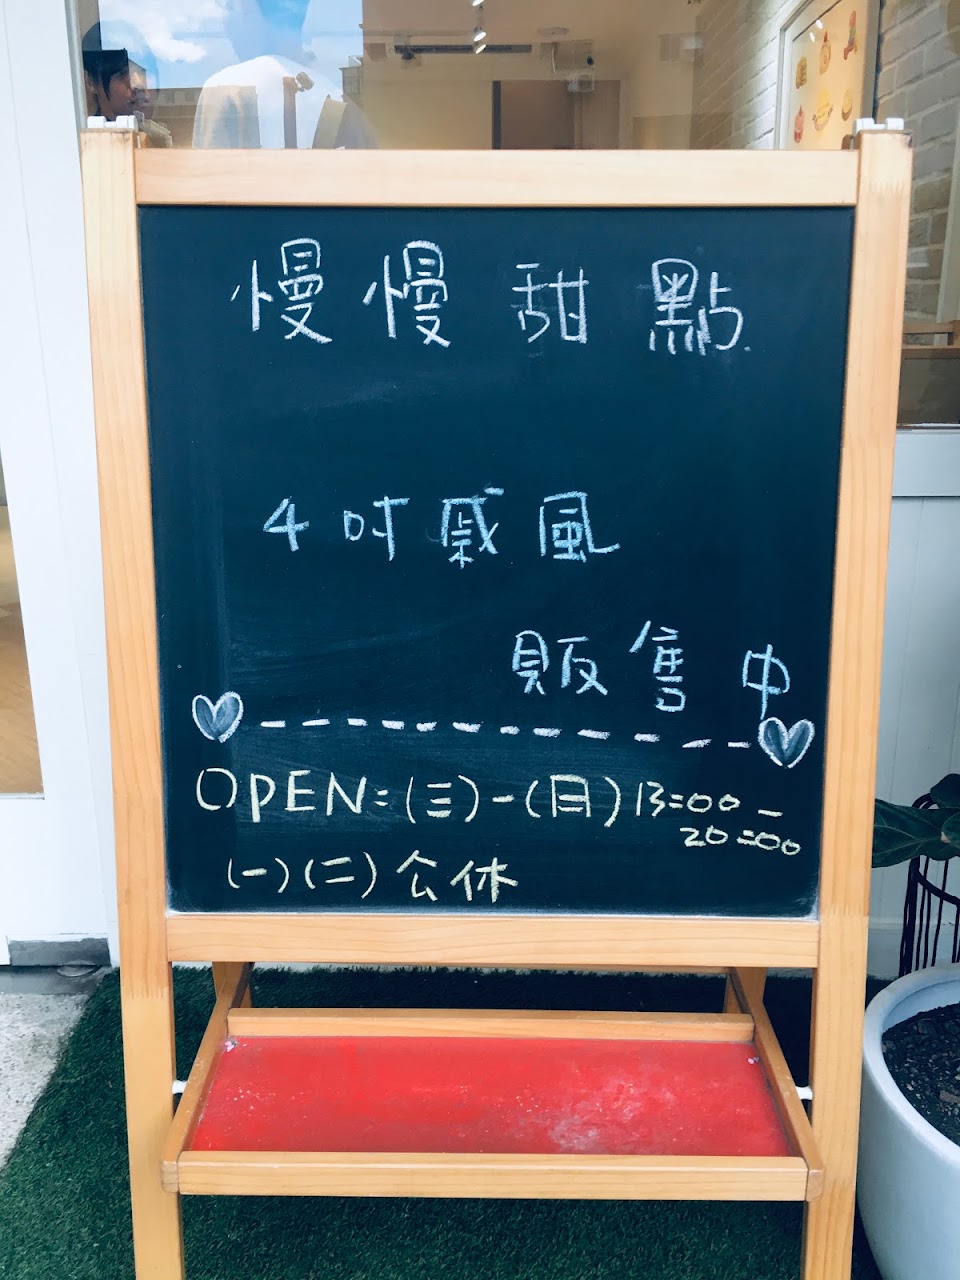 慢慢甜點
4吋戚風
販售中
OPEN=(三)-(日)13=00-
20=00
(一)(二)公休